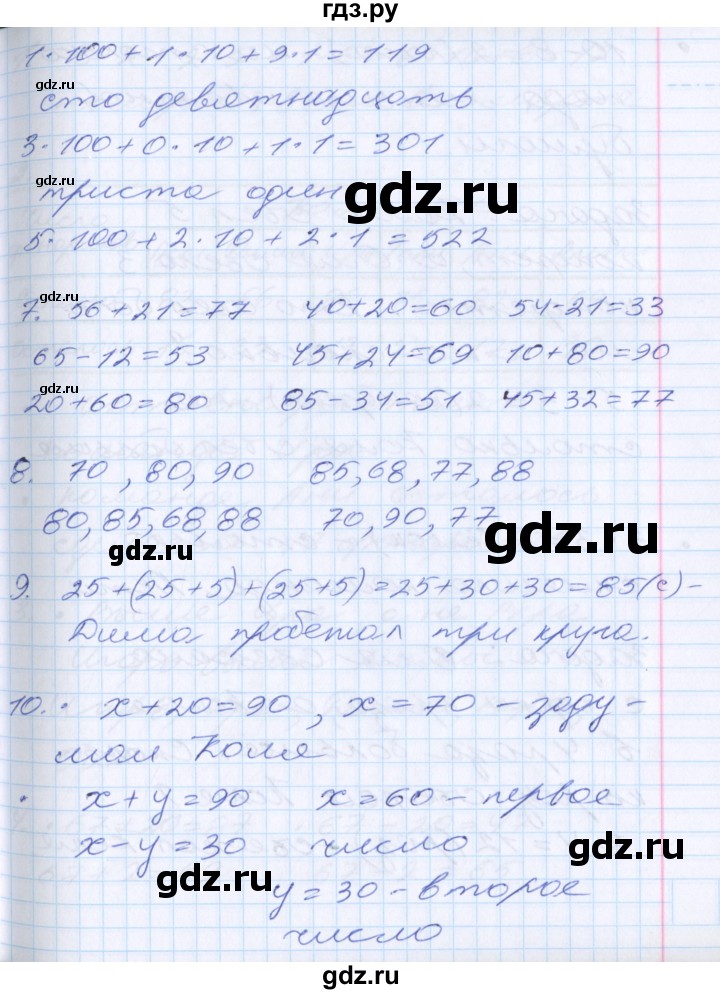 гдз.ру
1·100+1·10+9·1=119
gdz.ru
сто девятнадцать
3·100+0·10+1·1=301
gdz.ru
триста один
gdz.ru
5·100+2·10+2·1=522
gdz.ru
7. 56+21=77 40+20=60 54-21=33
65-12=53 45+24=69 10+80=90
gdz.ru
20+60=80 85-34=51 45+32=77
8. 70, 80, 90 85, 68, 77, 88
80, 85, 68, 88 70, 90, 77
gdz.ru
gdz.ru
9. 25+(25+5)+(25+5)=25+30+30=85(с) -
Дима пробегал три круга.
gdz.ru
10. · x+20=90, x=70 - заду-
мал Коля
gdz.ru
· x+y=90 x=60 - первое
x-y=30 число
gdz.ru
gdz.ru
y=30 - второе
число
gdz.ru
gdz.ru